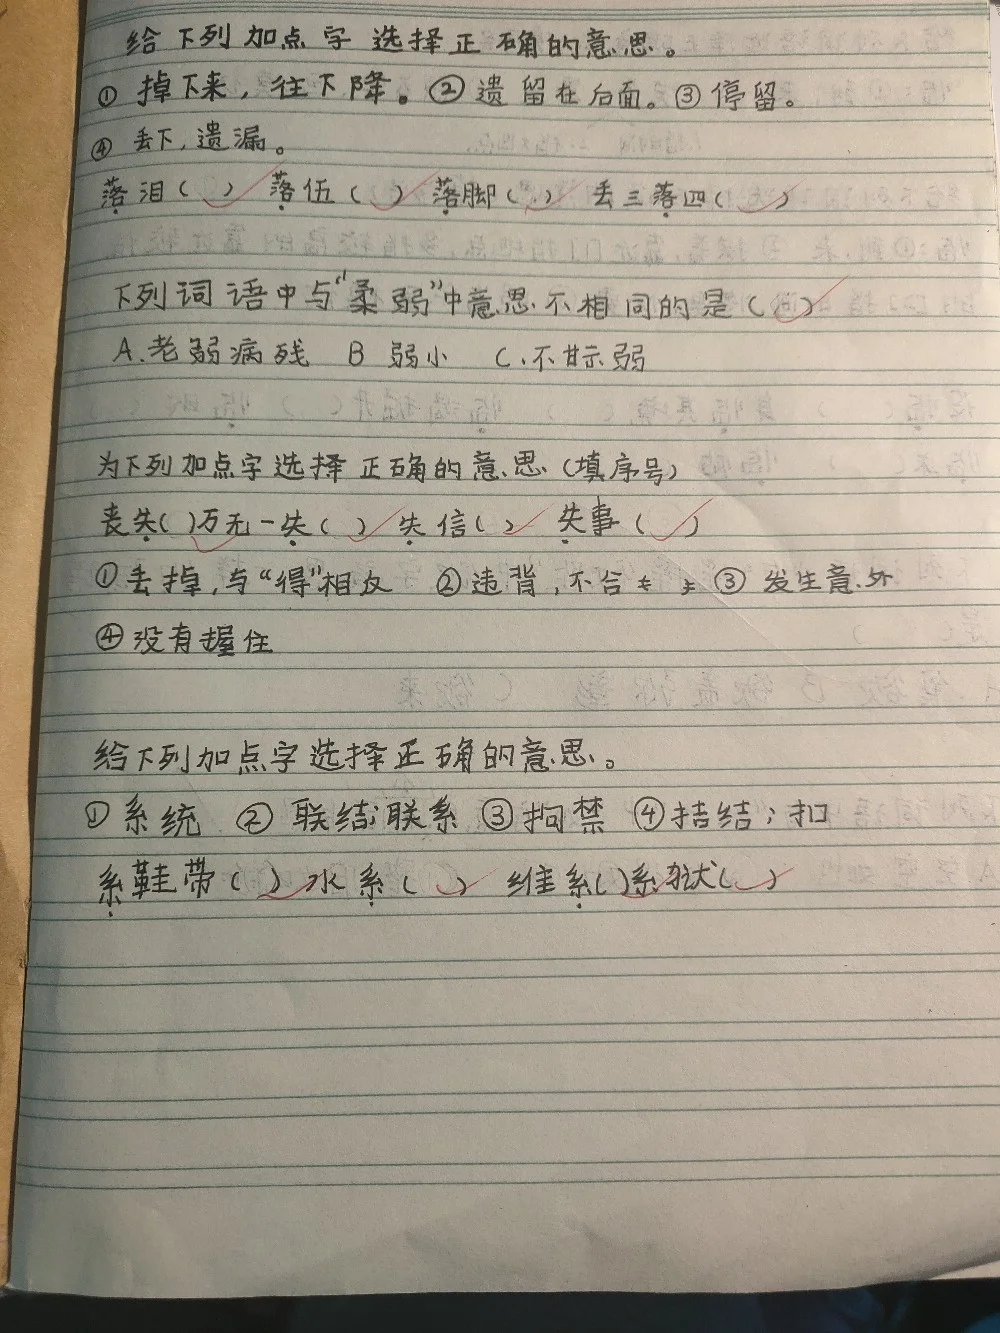 给下列加点字选择正确的意思。
① 掉下来，往下降。②遗留在后面。③停留。
④ 丢下，遗漏。
落泪（ ） 落伍（ ） 落脚（ ） 丢三落四（ ）
下列词语中与“柔弱”中意思不相同的是（ ）
A.老弱病残 B 弱小 C.不甘示弱
为下列加点字选择正确的意思（填序号）
丧失( )万无一失（ ） 失信（ ） 失事（ ）
①丢掉，与“得”相反 ②违背，不合 ③ 发生意外
④没有握住
给下列加点字选择正确的意思。
① 系统 ② 联结；联系 ③拘禁 ④打结；扣
系鞋带（ ）水系（ ） 维系( )系狱（ ）